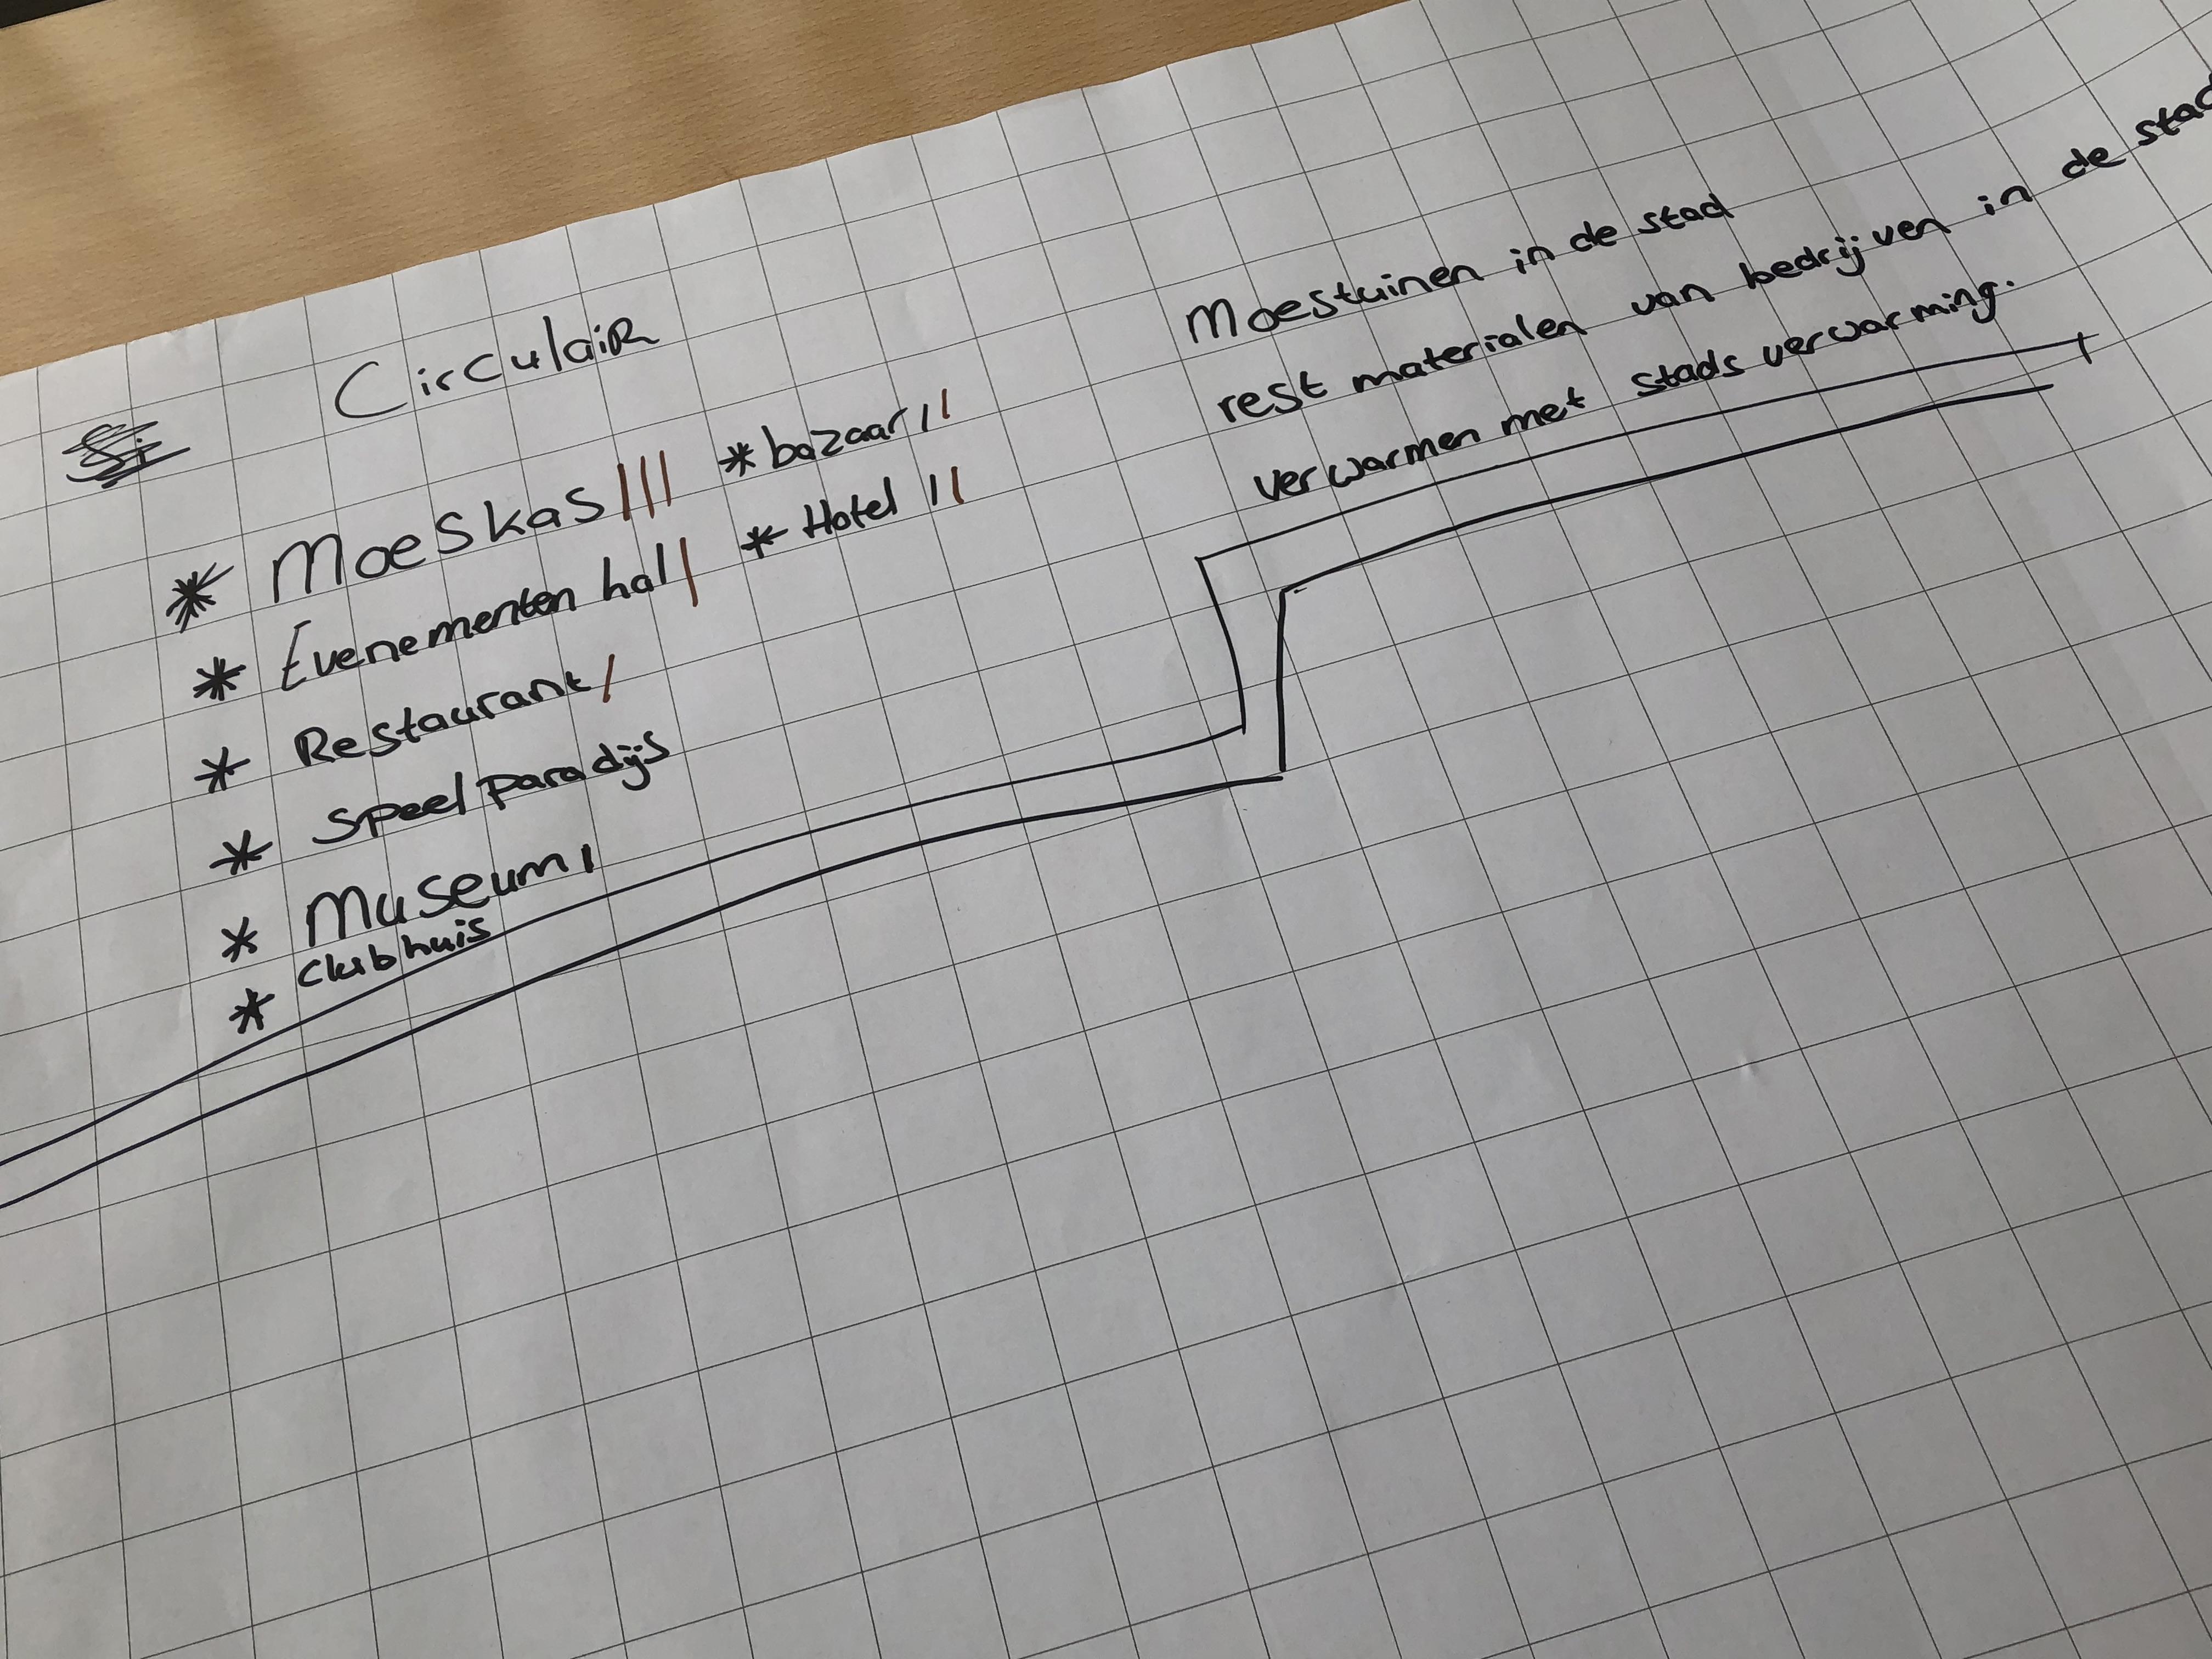 Circulair
* Moeskas ||| * bazaar ||
* Evenementen hal | * Hotel ||
* Restaurant /
* Speel Paradijs
* Museum |
* Clubhuis
Moestuinen in de stad
rest materialen van bedrijven in de stad
verwarmen met stads verwarming.